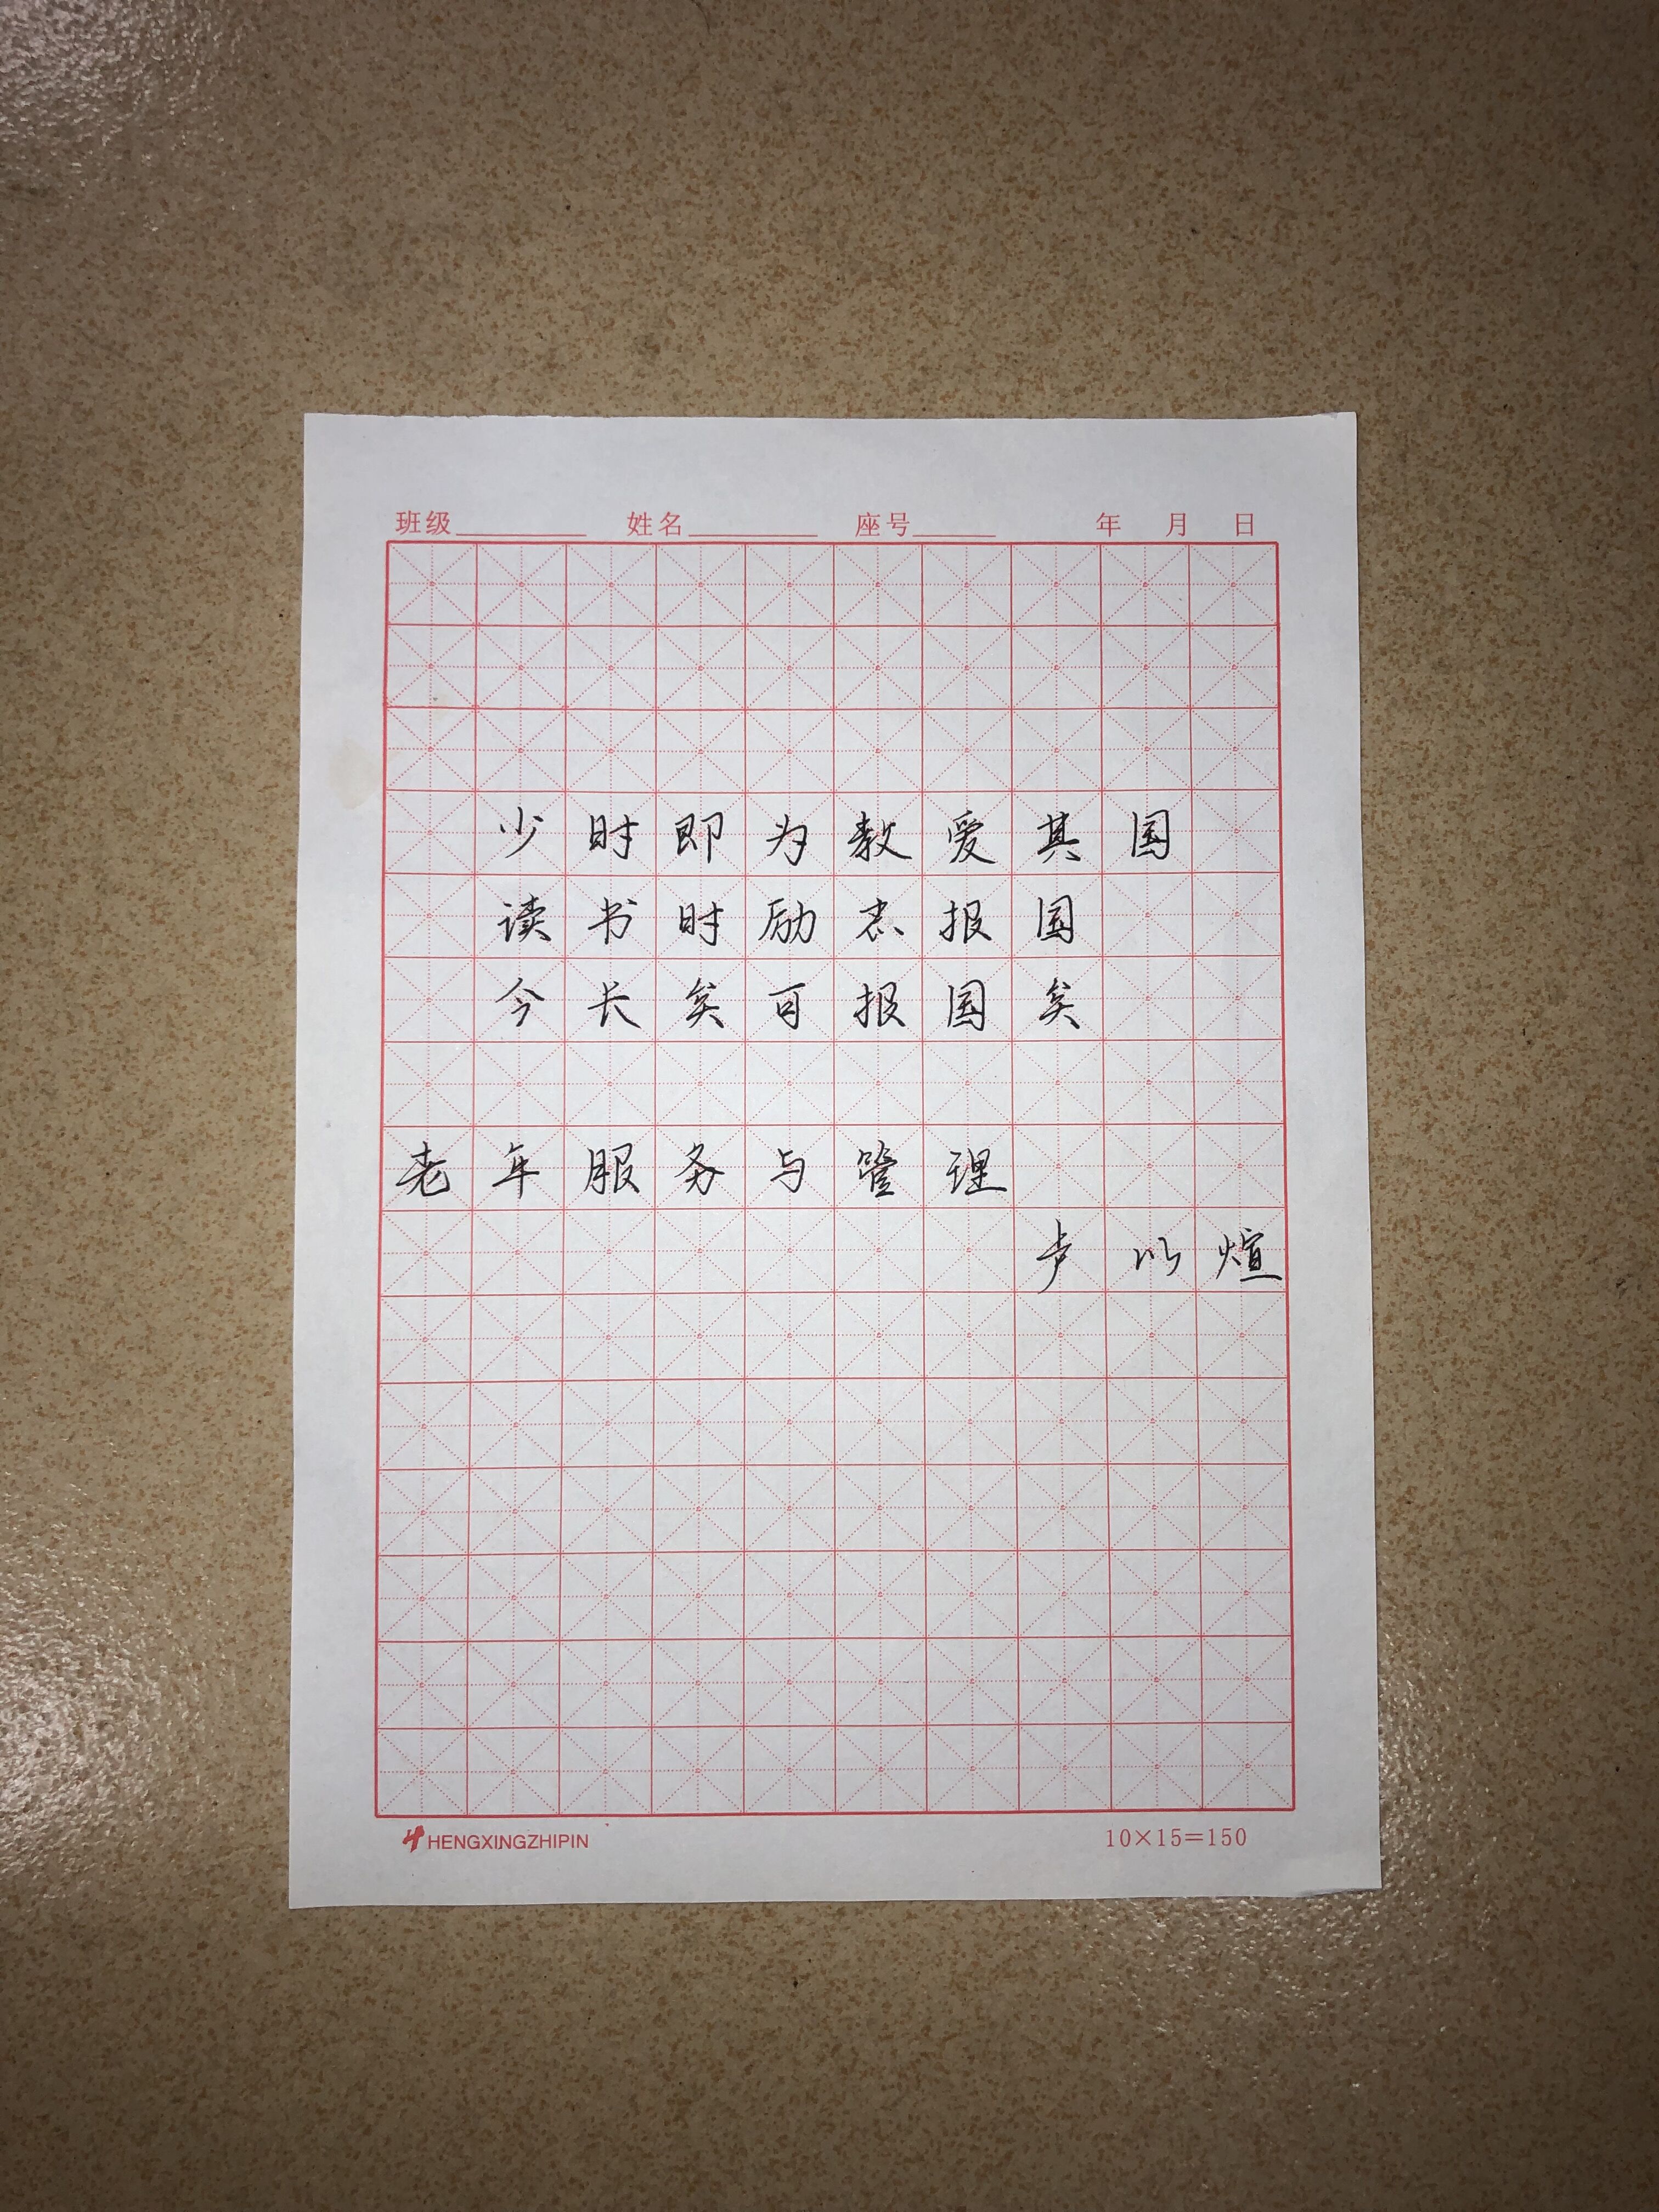 班级 姓名 座号 年 月 日
少时即为教爱其国
读书时励志报国
今长矣可报国矣
老年服务与管理
卢以煊
HENGXINGZHIPIN 10×15=150